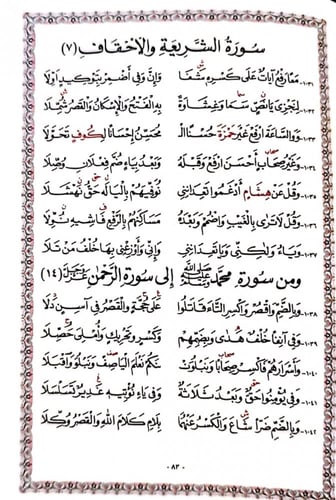 سورة الشريعة والأحقاف (٧)
١٠٣١- مَعًا رَفْعُ آيَاتٌ عَلَى كَسْرِهِ شَفَا وَإِنَّ وَفِي أَضْمِرْ بِتَوْكِيدٍ اوَّلَا
١٠٣٢- لِنَجْزِيَ يَا نَصٌّ سَمَا وَغِشَاوَةً بِهِ الْفَتْحُ وَالْإِسْكَانُ وَالْقَصْرُ شُمِّلَا
١٠٣٣- وَوَالسَّاعَةَ ارْفَعْ غَيْرَ حَمْزَةَ حُسْنًا الْـ مُحَسِّنُ إِحْسَانًا لِكُوفٍ تَحَوَّلَا
١٠٣٤- وَغَيْرُ صِحَابٍ أَحْسَنَ ارْفَعْ وَقَبْلَهُ وَبَعْدُ بِيَاءٍ ضُمَّ فِعْلَانِ وُصِّلَا
١٠٣٥- وَقُلْ عَنْ هِشَامٍ أَدْغَمُوا تَعِدَانِنِي نُوَفِّيَهُمْ بِالْيَا لَهُ حَقُّ نَهْشَلَا
١٠٣٦- وَقُلْ لَا تَرَى بِالْغَيْبِ وَاضْمُمْ وَبَعْدَهُ مَسَاكِنَهُمْ بِالرَّفْعِ فَاشِيهِ نُوِّلَا
١٠٣٧- وَيَاءُ وَلَكِنِّي وَيَا تَعِدَانِنِي وَإِنِّي وَأَوْزِعْنِي بِهَا خُلْفُ مَنْ تَلَا
ومن سورة محمد ﷺ إلى سورة الرحمن عز وجل (١٤)
١٠٣٨- وَبِالضَّمِّ وَاقْصُرْ وَاكْسِرِ التَّاءَ قَاتَلُوا عَلَى حُجَّةٍ وَالْقَصْرُ فِي آسِنٍ دَلَا
١٠٣٩- وَفِي آنِفًا خُلْفٌ هَدَى وَبِضَمِّهِمْ وَكَسْرٍ وَتَحْرِيكٍ وَأُمْلِيَ حُصِّلَا
١٠٤٠- وَأَسْرَارَهُمْ فَاكْسِرْ صِحَابًا وَنَبْلُوَنْـ نَكُمْ نَعْلَمَ الْيَا صِفْ وَنَبْلُوَ وَاقْبَلَا
١٠٤١- وَفِي يُؤْمِنُوا حَقٌّ وَبَعْدُ ثَلَاثَةٌ وَفِي يَاءِ يُؤْتِيهِ غَدِيرٌ تَسَلْسَلَا
١٠٤٢- وَبِالضَّمِّ ضُرًّا شَاعَ وَالْكَسْرُ عَنْهُمَا بِلَامِ كَلَامَ اللَّهِ وَالْقَصْرُ وُكِّلَا
- ٨٣ -